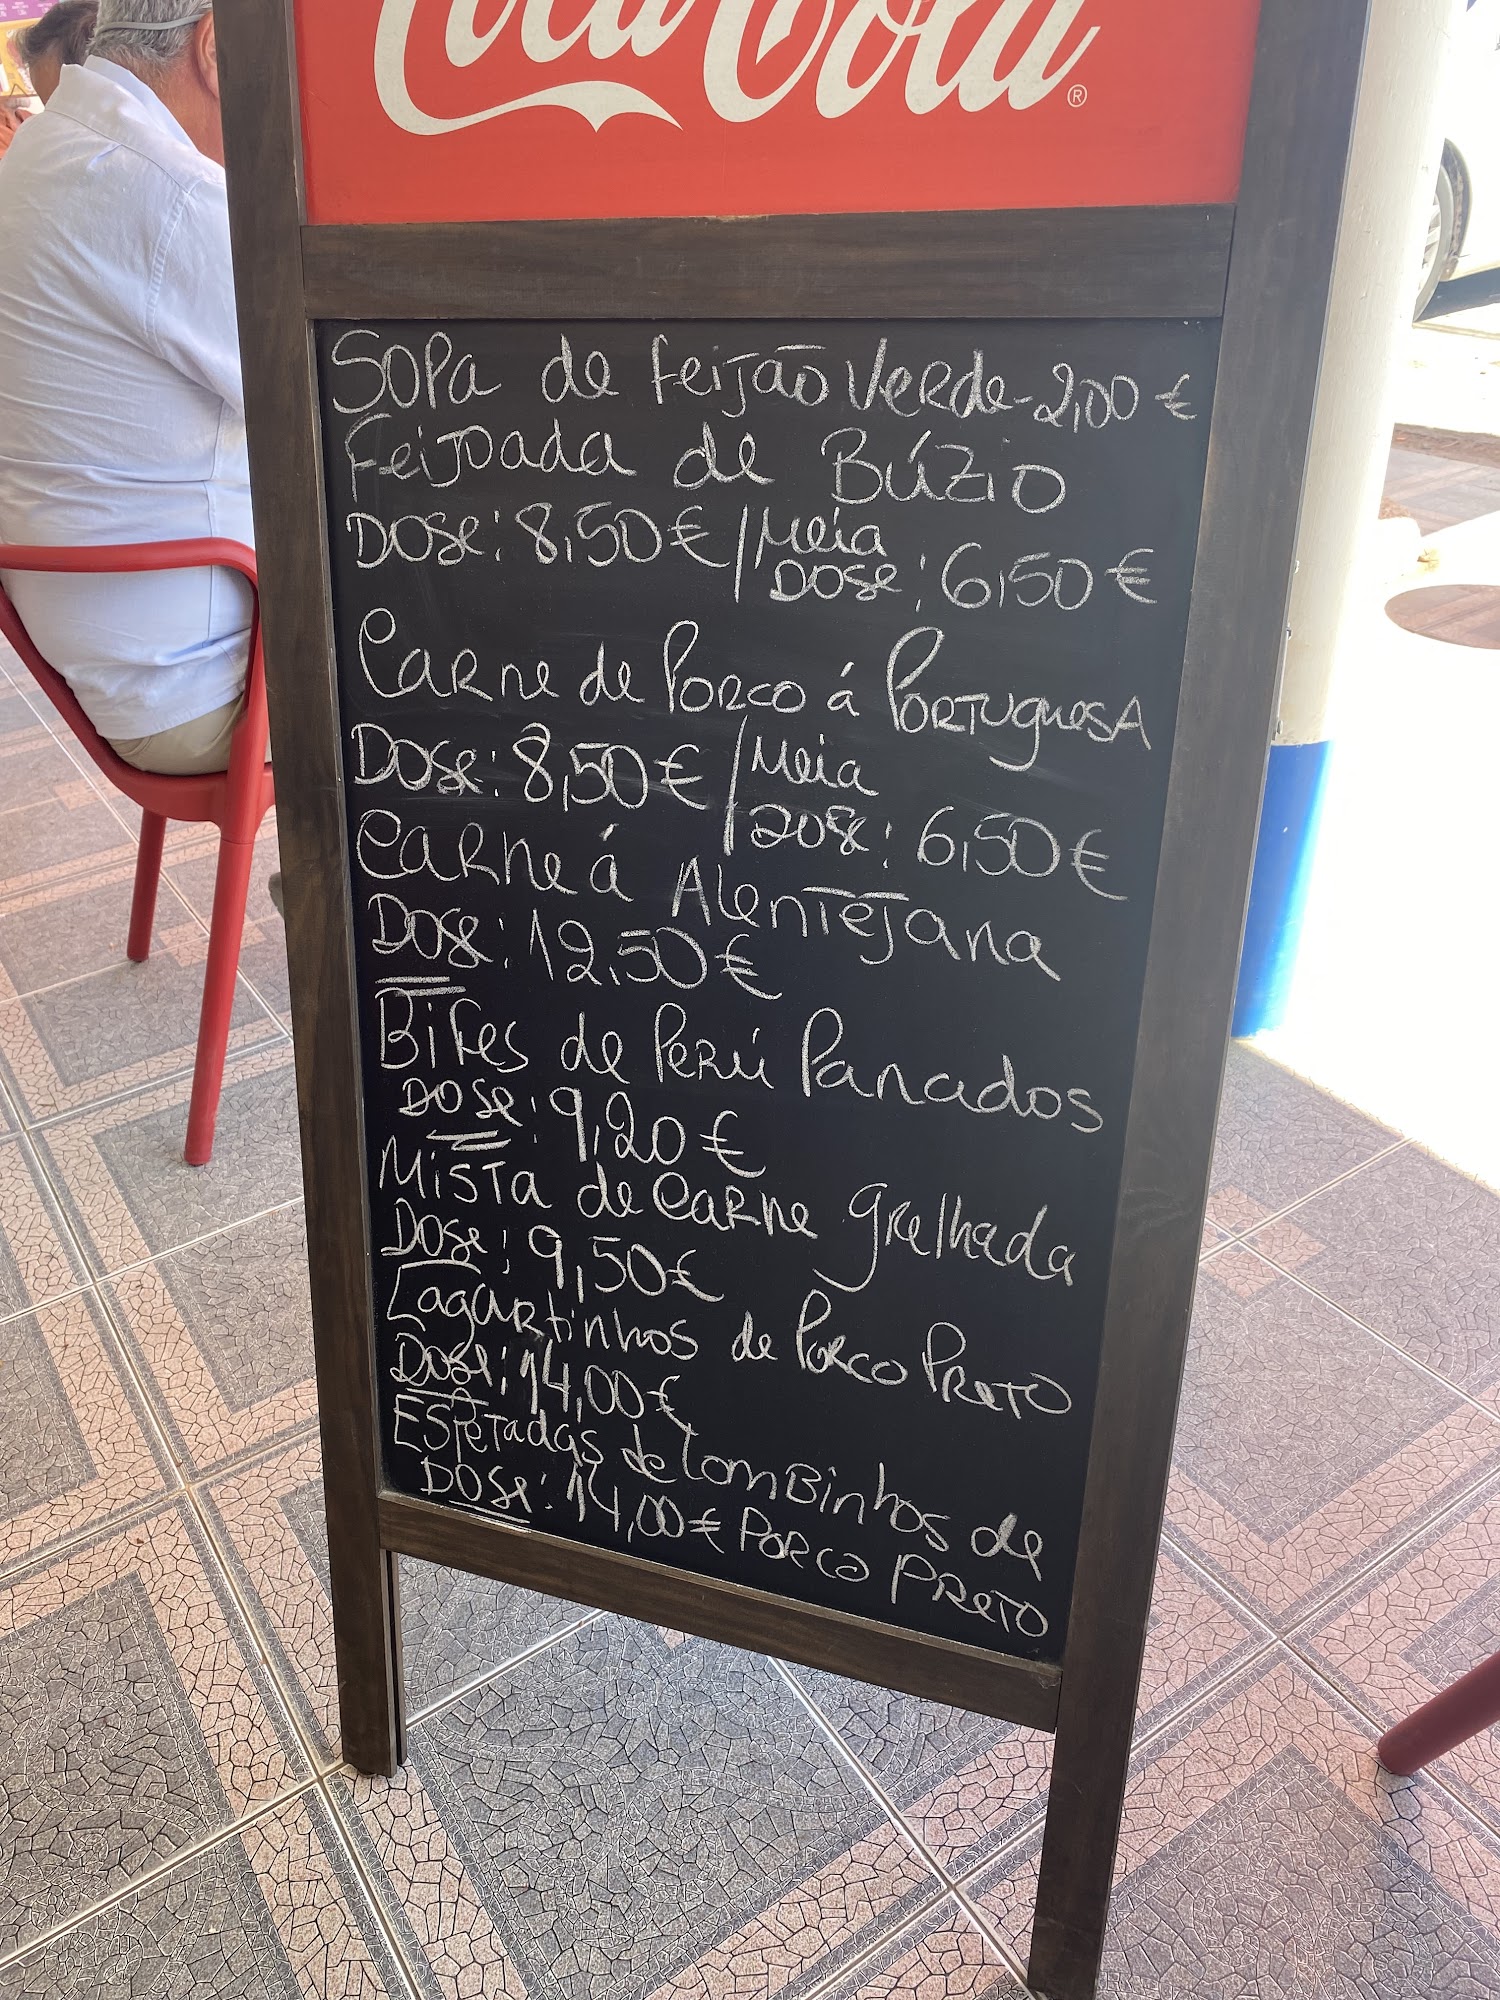 Coca-Cola ®
Sopa de Feijão Verde - 2,00 €
Feijoada de Búzio
Dose: 8,50 € / Meia Dose: 6,50 €
Carne de Porco á Portuguesa
Dose: 8,50 € / Meia Dose: 6,50 €
Carne á Alentejana
Dose: 12,50 €
Bifes de Perú Panados
Dose: 9,20 €
Mista de Carne grelhada
Dose: 9,50 €
Lagartinhos de Porco Preto
Dose: 14,00 €
Espetadas de Lombinhos de
Dose: 14,00 € Porco Preto